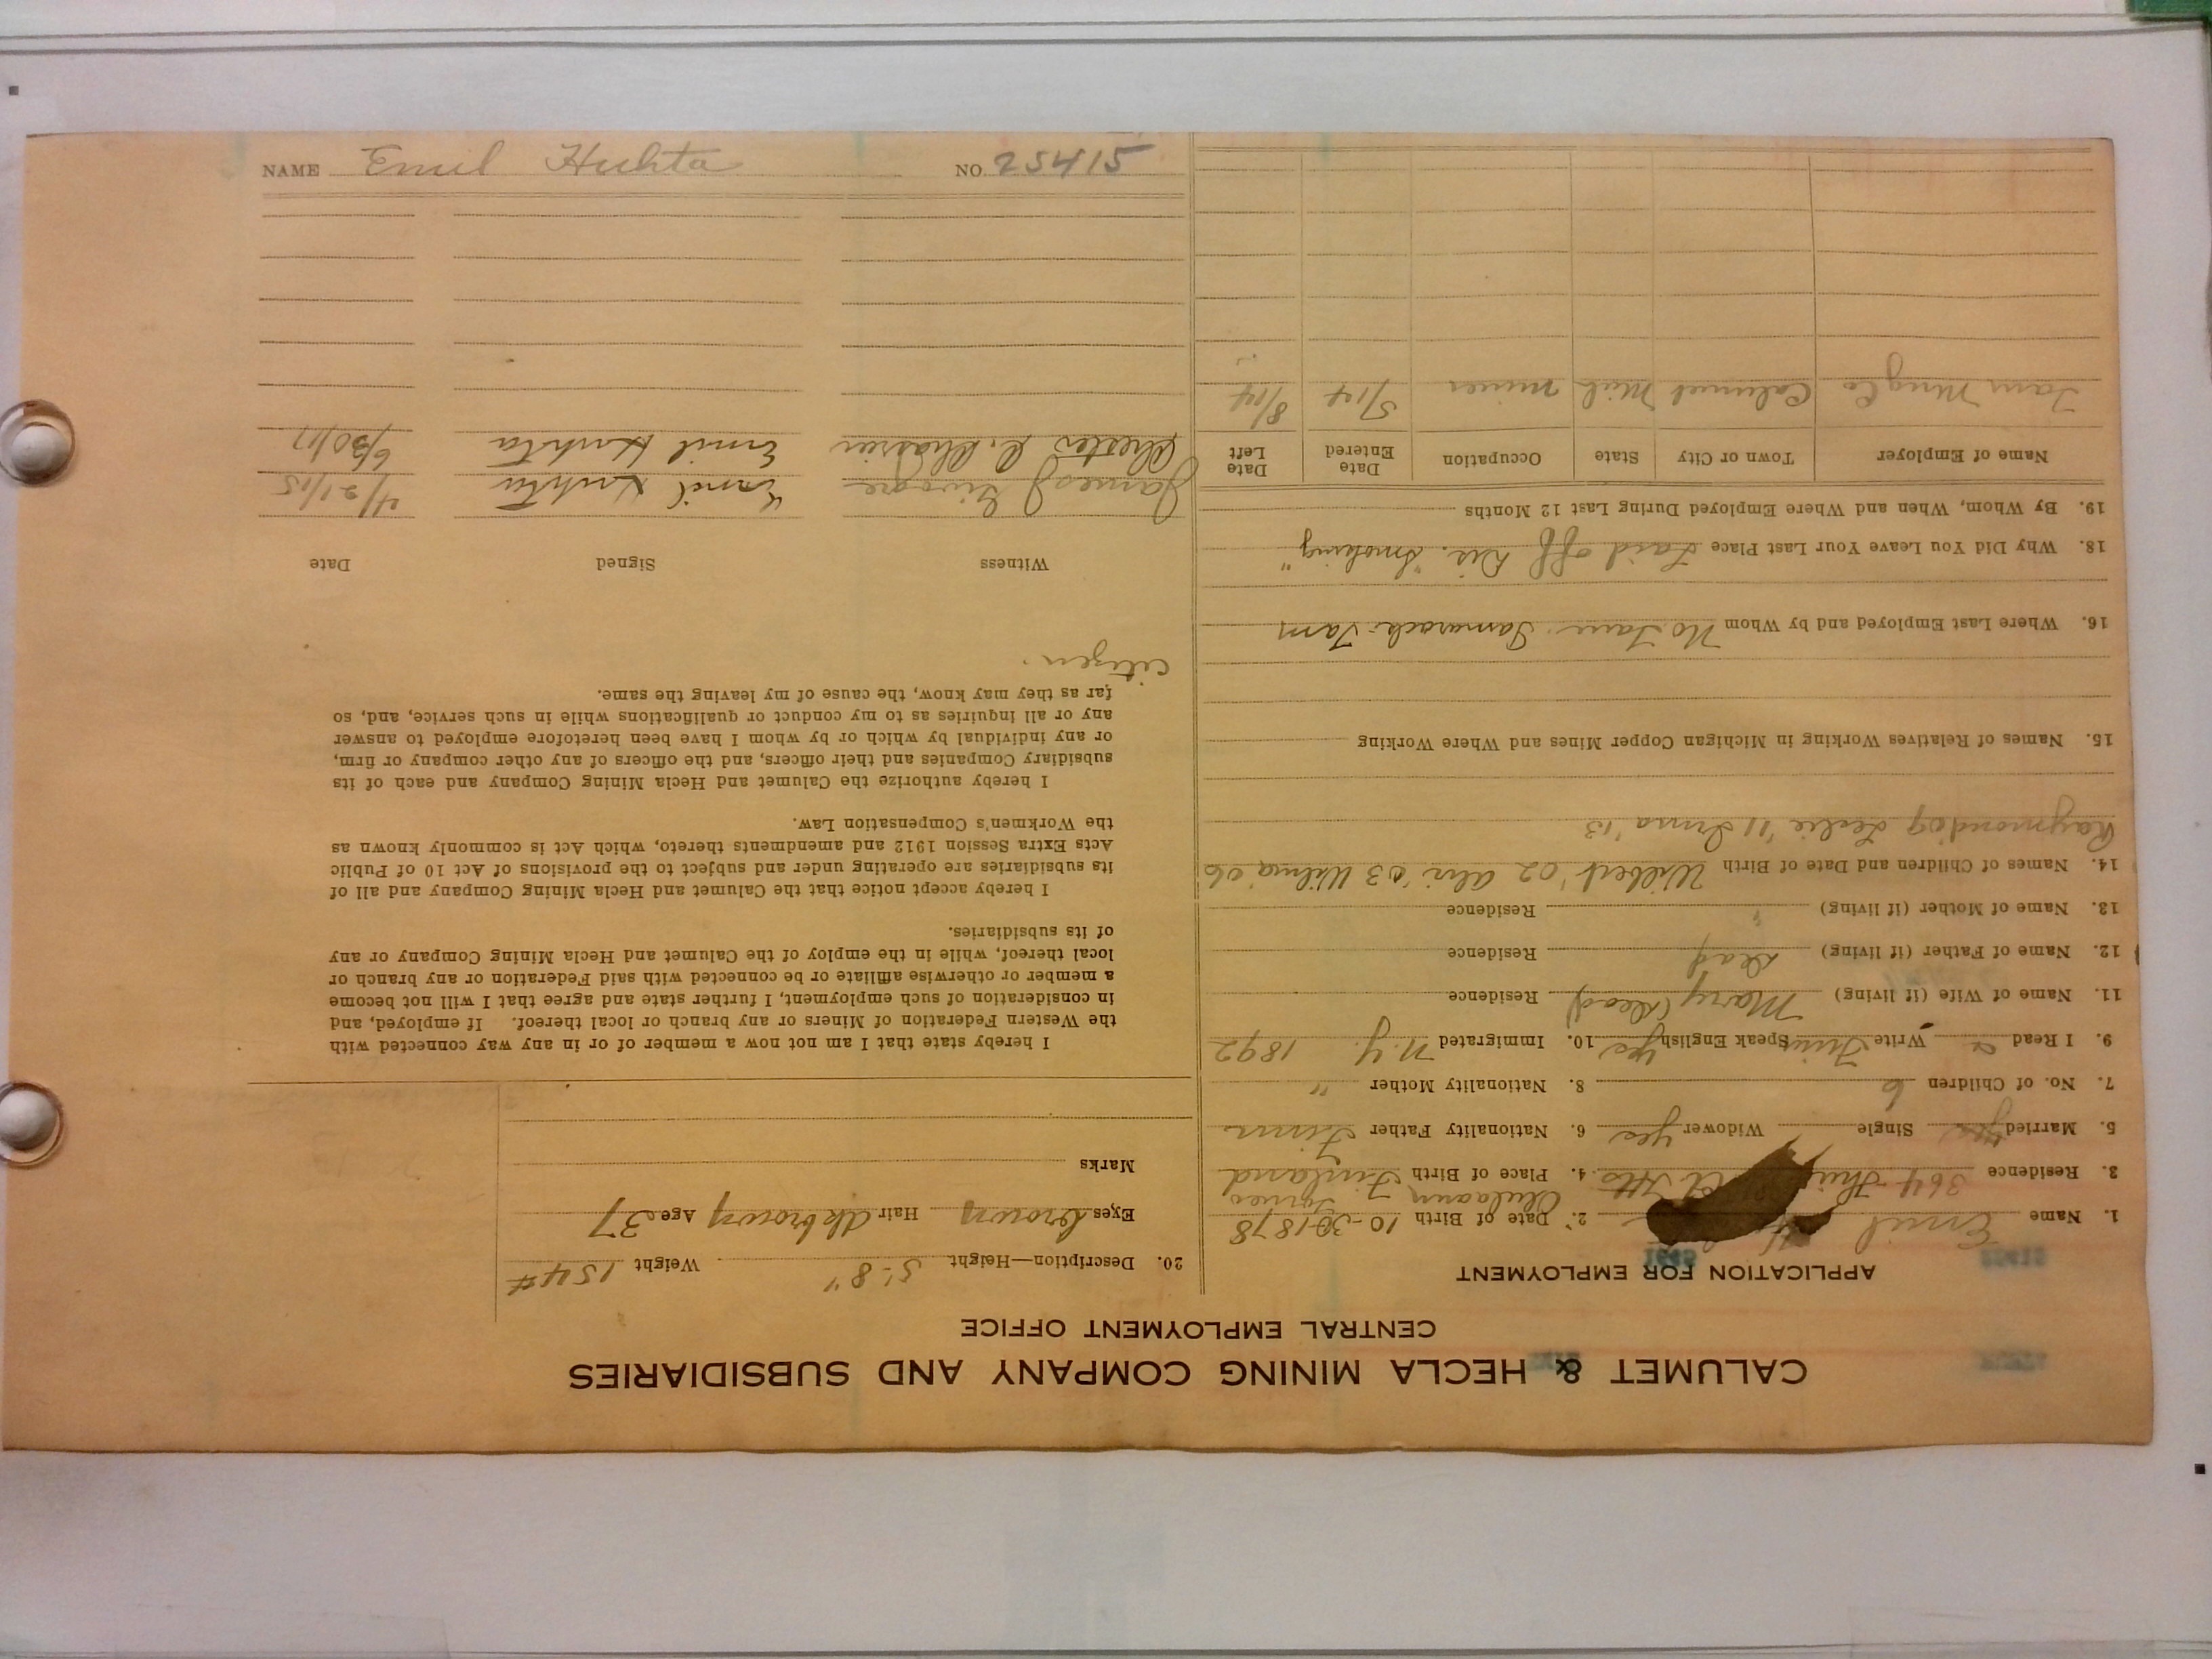 CALUMET & HECLA MINING COMPANY AND SUBSIDIARIES
CENTRAL EMPLOYMENT OFFICE
APPLICATION FOR EMPLOYMENT
1. Name Emil 2. Date of Birth 10-30-1878
3. Residence 364 4. Place of Birth Finland
5. Married Single Widower yes 6. Nationality Father Finn
7. No. of Children 6 8. Nationality Mother "
9. I Read Write Finn Speak English yes 10. Immigrated N.Y. 1892
11. Name of Wife (if living) Mary (Dead) Residence
12. Name of Father (if living) Dead Residence
13. Name of Mother (if living) " Residence
14. Names of Children and Date of Birth Wilbert '02 '03 Wilma '06
Raymond 09 Leslie '11 '13
15. Names of Relatives Working in Michigan Copper Mines and Where Working
16. Where Last Employed and by Whom No Tam
18. Why Did You Leave Your Last Place Laid off Dis. "Smoking"
19. By Whom, When and Where Employed During Last 12 Months
Name of Employer Town or City State Occupation Date Entered Date Left
Tam Mng Co Calumet Mich miner 5/14 8/14
20. Description—Height 5'-8" Weight 154#
Eyes brown Hair dk brown Age 37
Marks
I hereby state that I am not now a member of or in any way connected with
the Western Federation of Miners or any branch or local thereof. If employed, and
in consideration of such employment, I further state and agree that I will not become
a member or otherwise affiliate or be connected with said Federation or any branch or
local thereof, while in the employ of the Calumet and Hecla Mining Company or any
of its subsidiaries.
I hereby accept notice that the Calumet and Hecla Mining Company and all of
its subsidiaries are operating under and subject to the provisions of Act 10 of Public
Acts Extra Session 1912 and amendments thereto, which Act is commonly known as
the Workmen's Compensation Law.
I hereby authorize the Calumet and Hecla Mining Company and each of its
subsidiary Companies and their officers, and the officers of any other company or firm,
or any individual by which or by whom I have been heretofore employed to answer
any or all inquiries as to my conduct or qualifications while in such service, and, so
far as they may know, the cause of my leaving the same.
citizen.
Witness Signed Date
James J Emil Huhta 4/21/15
Chester Emil Huhta 6/30/17
NAME Emil Huhta NO. 25415